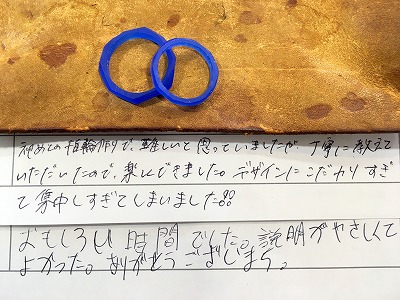 初めての指輪作りで、難しいと思っていましたが、丁寧に教えて
いただいたので、楽しくできました。デザインにこだわりすぎ
て集中しすぎてしまいました!!
おもしろい時間でした。説明がやさしくて
よかった。ありがとうございます。